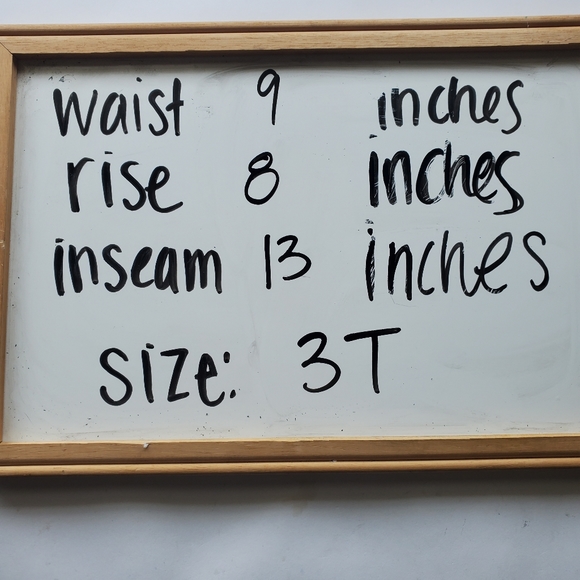 waist 9 inches
rise 8 inches
inseam 13 inches
size: 3T